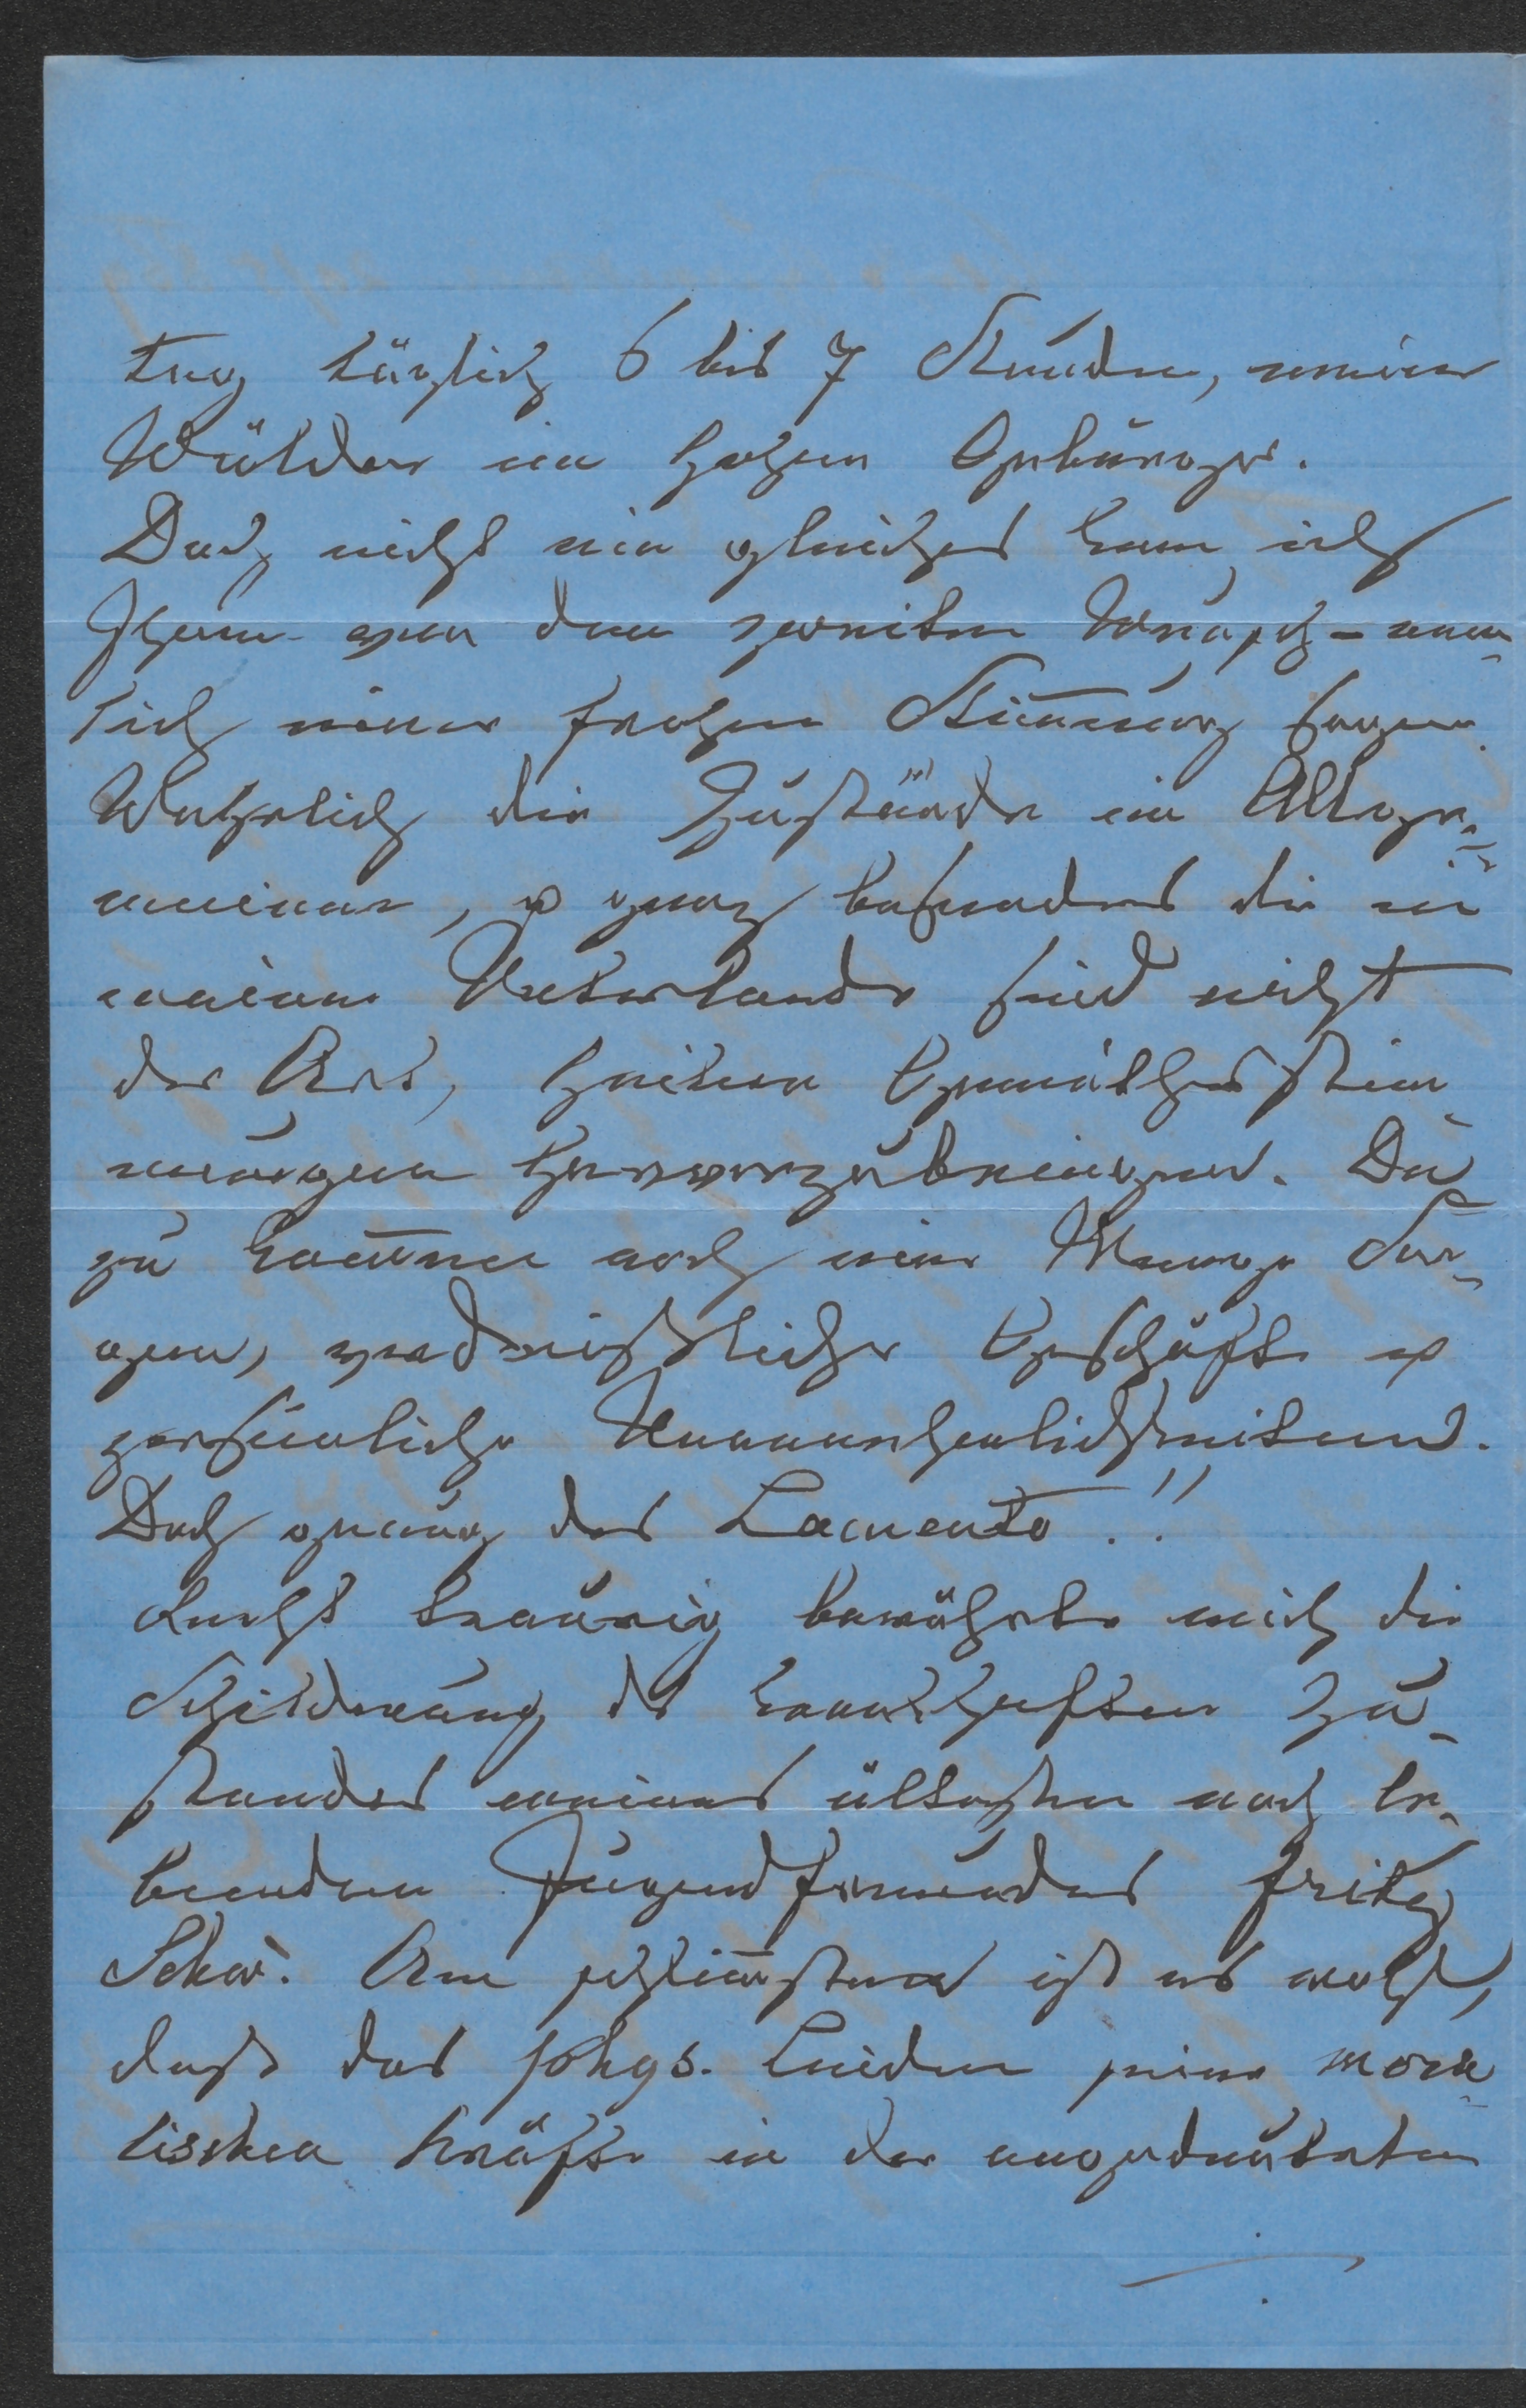 tag täglich 6 bis 7 Stunden, meine
Wälder im hohen Gebürge.
Doch nicht ein gleiches kann ich
Ihnen von dem zweiten Wunsch - nem
lich einer frohen Stimmung sagen.
Wahrlich die Zustände im Allge-
meinen, u ganz besonders die in
meinem Vaterlande sind nicht
der Art, heitere Gemüthsstim
mungen hervorzubringen. Da
zu kommen noch eine Menge Sor-
gen, verdrießliche Geschäfte u
persönliche Unannehmlichkeiten.
Doch genug des Lamento!!
Recht traurig berührte mich die
Schilderung des krankhaften Zu-
standes meines ältesten noch le-
benden Jugendfreundes Fritz
Schw. Am schlimmsten ist es wohl,
daß das phys. Leiden seine mora
lischen Kräfte in der angedeuteten